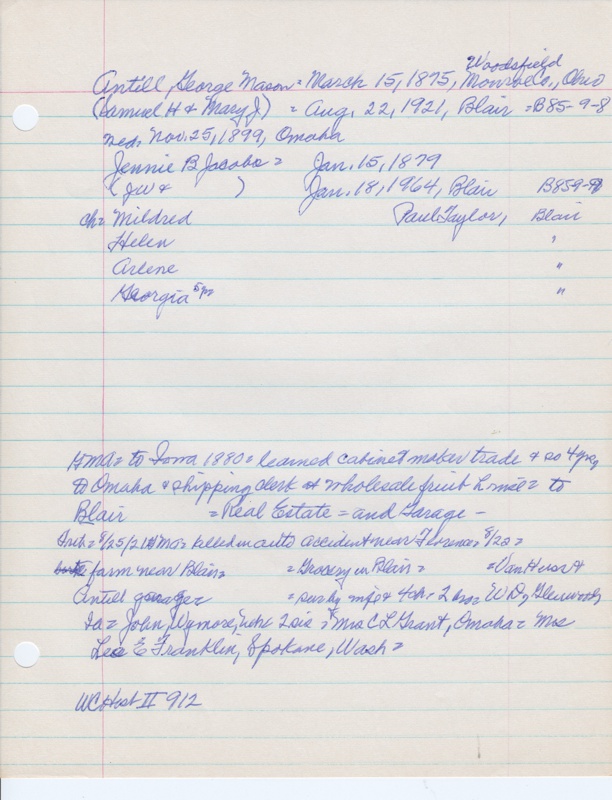 Woodsfield
Antill, George Mason = March 15, 1875, Monroe Co., Ohio
(Samuel H & Mary J.) = Aug. 22, 1921, Blair = B85-9-8
med. Nov. 25, 1899, Omaha
Jennie B Jacobs = Jan. 15, 1879
(JW & ) Jan. 18, 1964, Blair B859-9
ch= Mildred Paul Taylor, Blair
Helen "
Arlene "
Georgia "
to Iowa 1880 = learned cabinet maker trade & so 4 yrs,
to Omaha & shipping clerk at wholesale fruit = to
Blair = Real Estate = and Garage -
8/25/21 = killed in auto accident near Florence 8/22 =
farm near Blair = = Grocery in Blair = = Van Horst &
Antill garage = = surby wife & 4 ch = 2 bros = W D, Glenwood,
Ia = John, Wymore, Nebr 2 sis = Mrs C L Grant, Omaha = Mrs
Leo E Franklin, Spokane, Wash =
WC Hist II 912